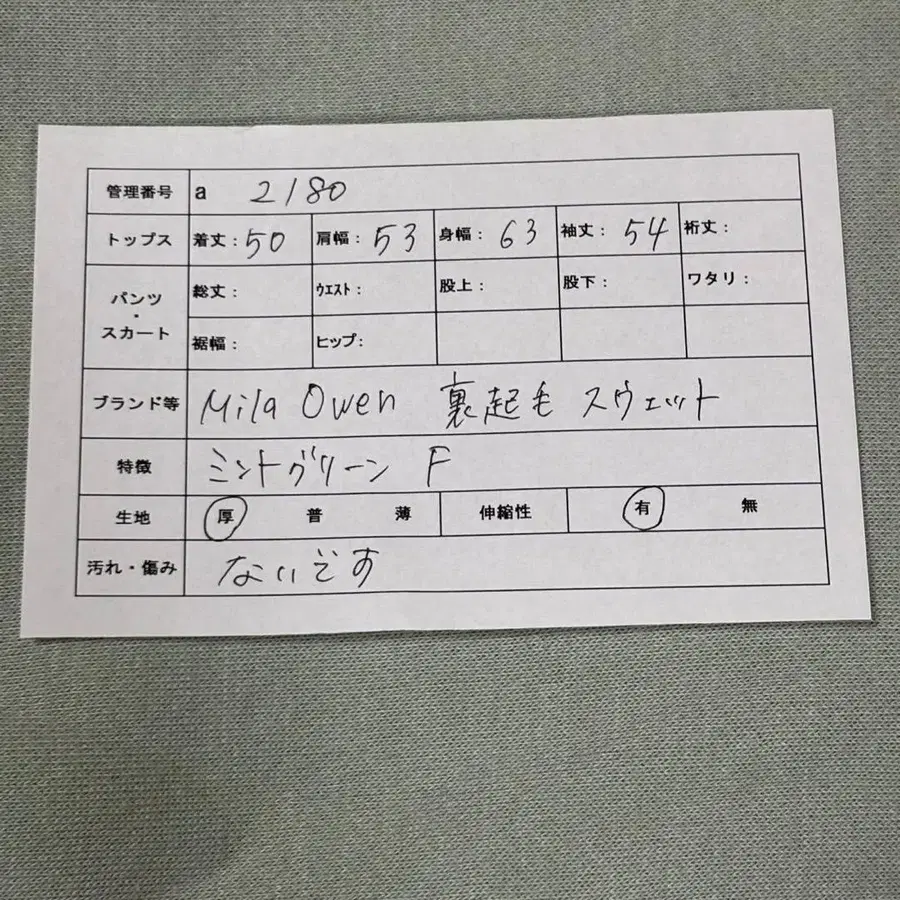 管理番号 a 2180
トップス 着丈：50 肩幅：53 身幅：63 袖丈：54 裄丈：
パンツ・スカート 総丈： ウエスト： 股上： 股下： ワタリ：
裾幅： ヒップ：
ブランド等 Mila Owen 裏起毛 スウェット
特徴 ミントグリーン F
生地 厚 普 薄 伸縮性 有 無
汚れ・傷み ないです